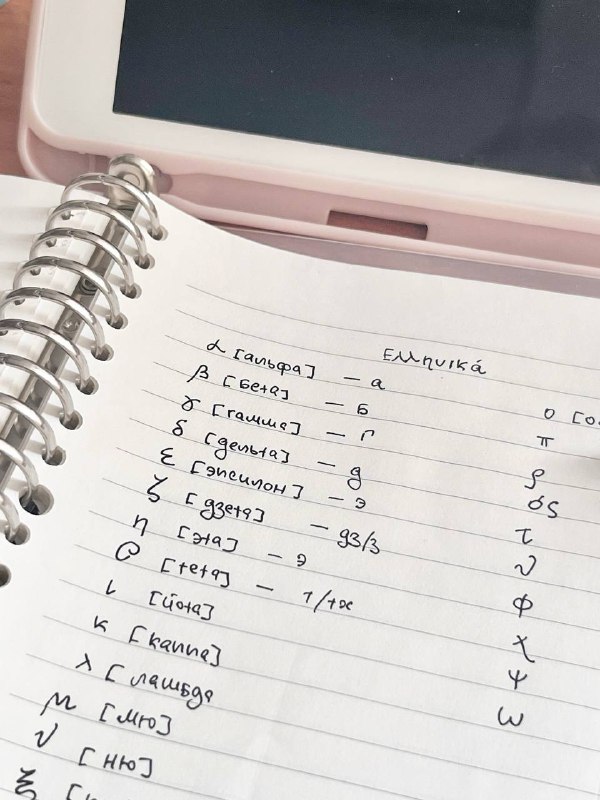 Ελληνικά
α [альфа] — а
β [бета] — б
γ [гамма] — г
δ [дельта] — д
ε [эпсилон] — э
ζ [дзета] — дз/з
η [эта] — э
θ [тета] — т/тх
ι [йота]
κ [каппа]
λ [ламбда
μ [мю]
ν [ню]
ξ
ο [о
π
ρ
σς
τ
υ
φ
χ
ψ
ω